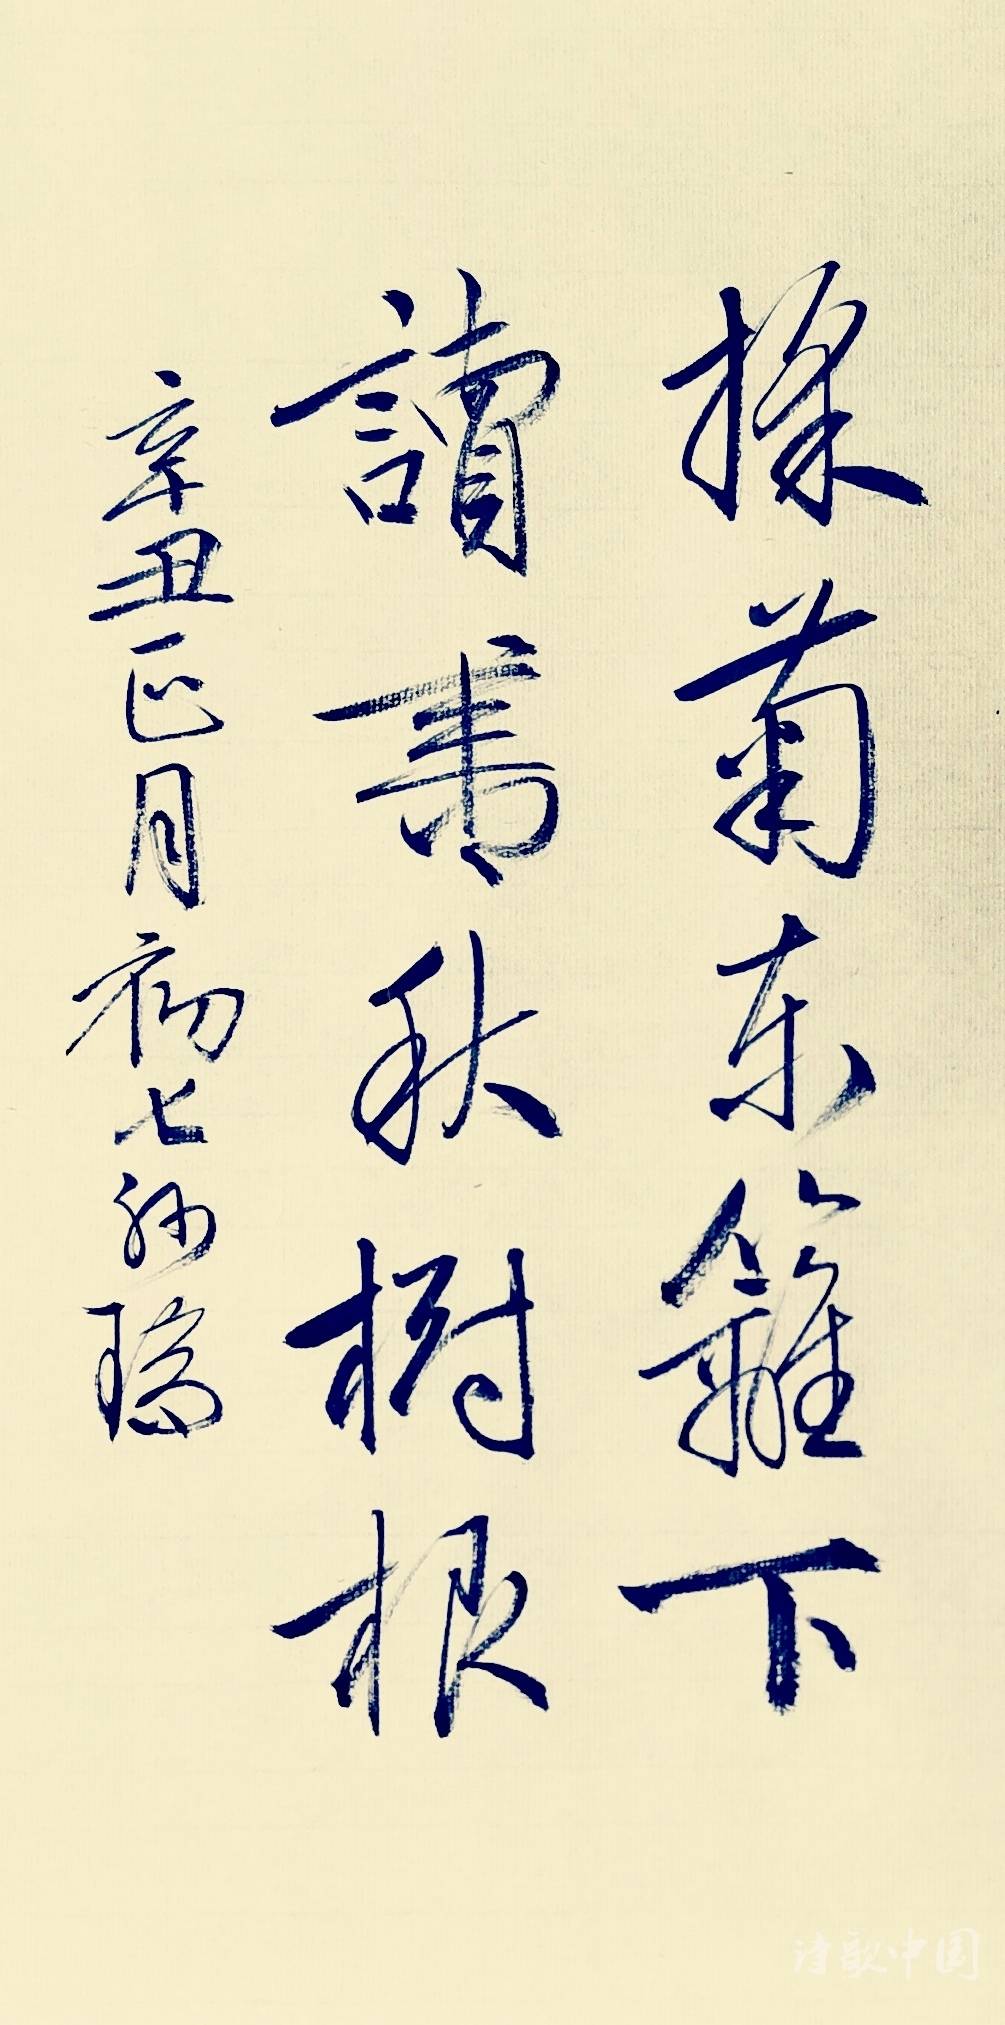 採菊东籬下
讀書秋樹根
辛丑正月初七孙瑞
诗歌中国